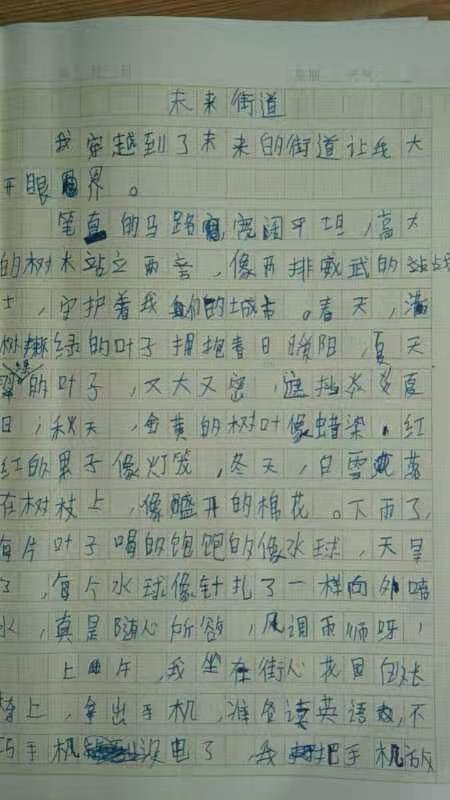 未来街道
我穿越到了未来的街道让我大
开眼界。
笔直的马路宽阔平坦，高大
的树木站立两旁，像两排威武的战
士，守护着我们的城市。春天，满
树绿的叶子拥抱春日暖阳，夏天
的叶子，又大又密，遮挡炎炎夏
日，秋天，金黄的树叶像蜡染，红
红的果子像灯笼，冬天，白雪落
在树枝上，像盛开的棉花。下雨了，
每片叶子喝的饱饱的像水球，天旱
了，每个水球像针扎了一样向外喷
水，真是随心所欲，风调雨师呀！
上午，我坐在街心花园的
椅上，拿出手机，准备读英语，不
巧手机没电了，我把手机放